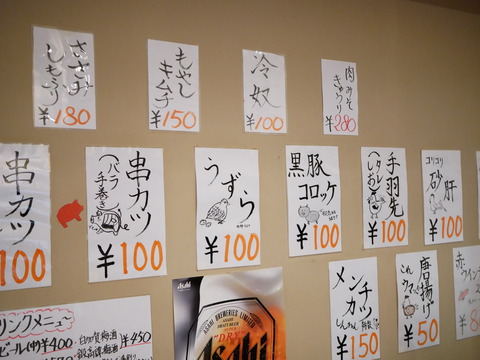 もやし
キムチ
¥150
冷奴
¥100
肉みそ
きゅうり
¥280
¥180
串カツ
100
串カツ
(バラ
手巻き)
¥100
うずら
¥100
黒豚
コロッケ
¥100
手羽先
¥100
コリコリ
砂肝
¥100
メンチ
カツ
150
唐揚げ
¥50
赤
ウイン
リンクメニュー
ビール(中)¥400
¥450
Asahi
ASAHI BREWERIES LIMITED
ASAHI
DRAFT BEER
"DRY"
Asahi